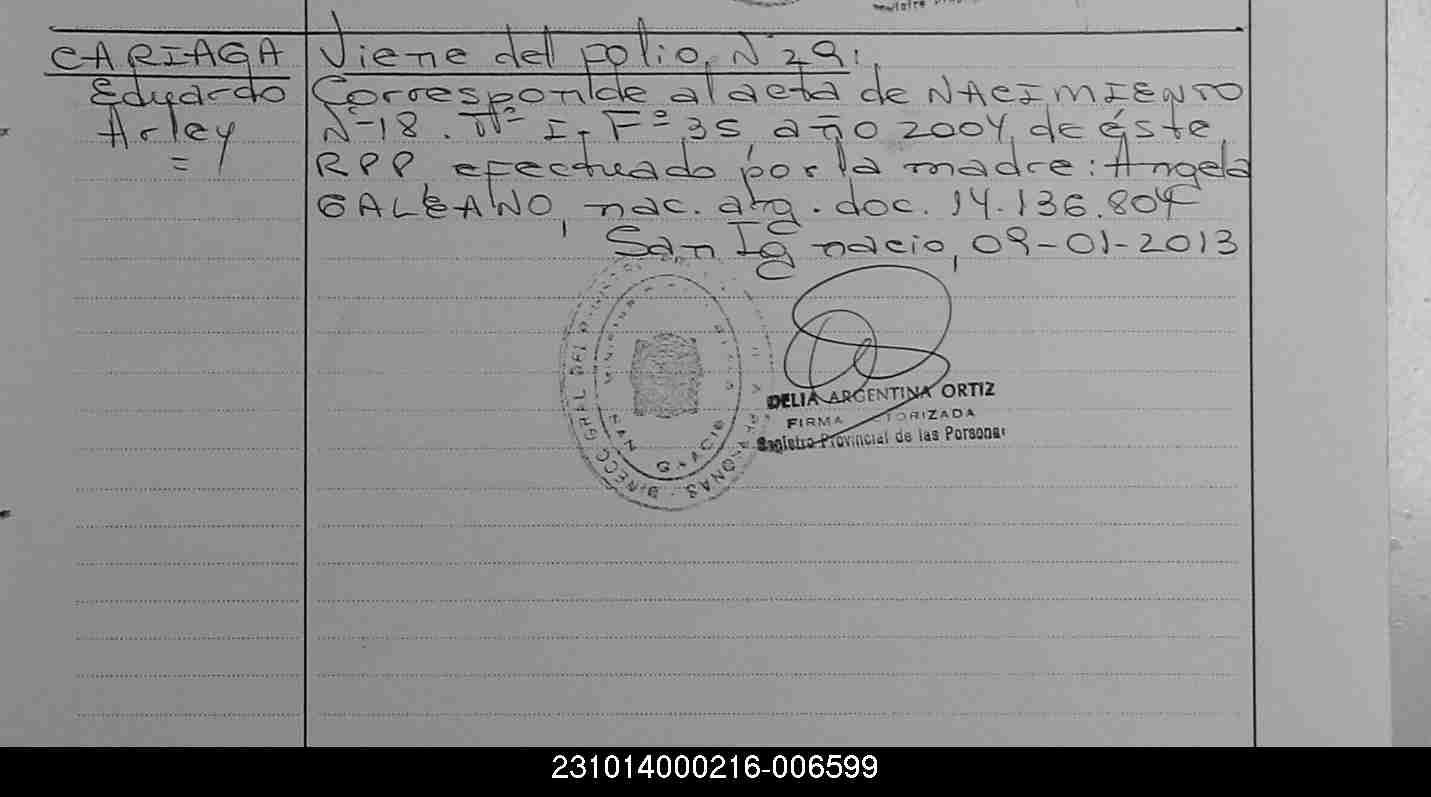 CARIAGA
Eduardo
Arley
=
Viene del folio, Nº 29.
Corresponde al acta de NACIMIENTO
Nº 18. Tº I. Fº 35 año 2004, de éste
RPP efectuado por la madre: Angela
GALEANO, nac. arg. doc. 14.136.804
San Ignacio, 09-01-2013
SAN
DELIA ARGENTINA ORTIZ
FIRMA
Registro Provincial de las Personas
231014000216-006599